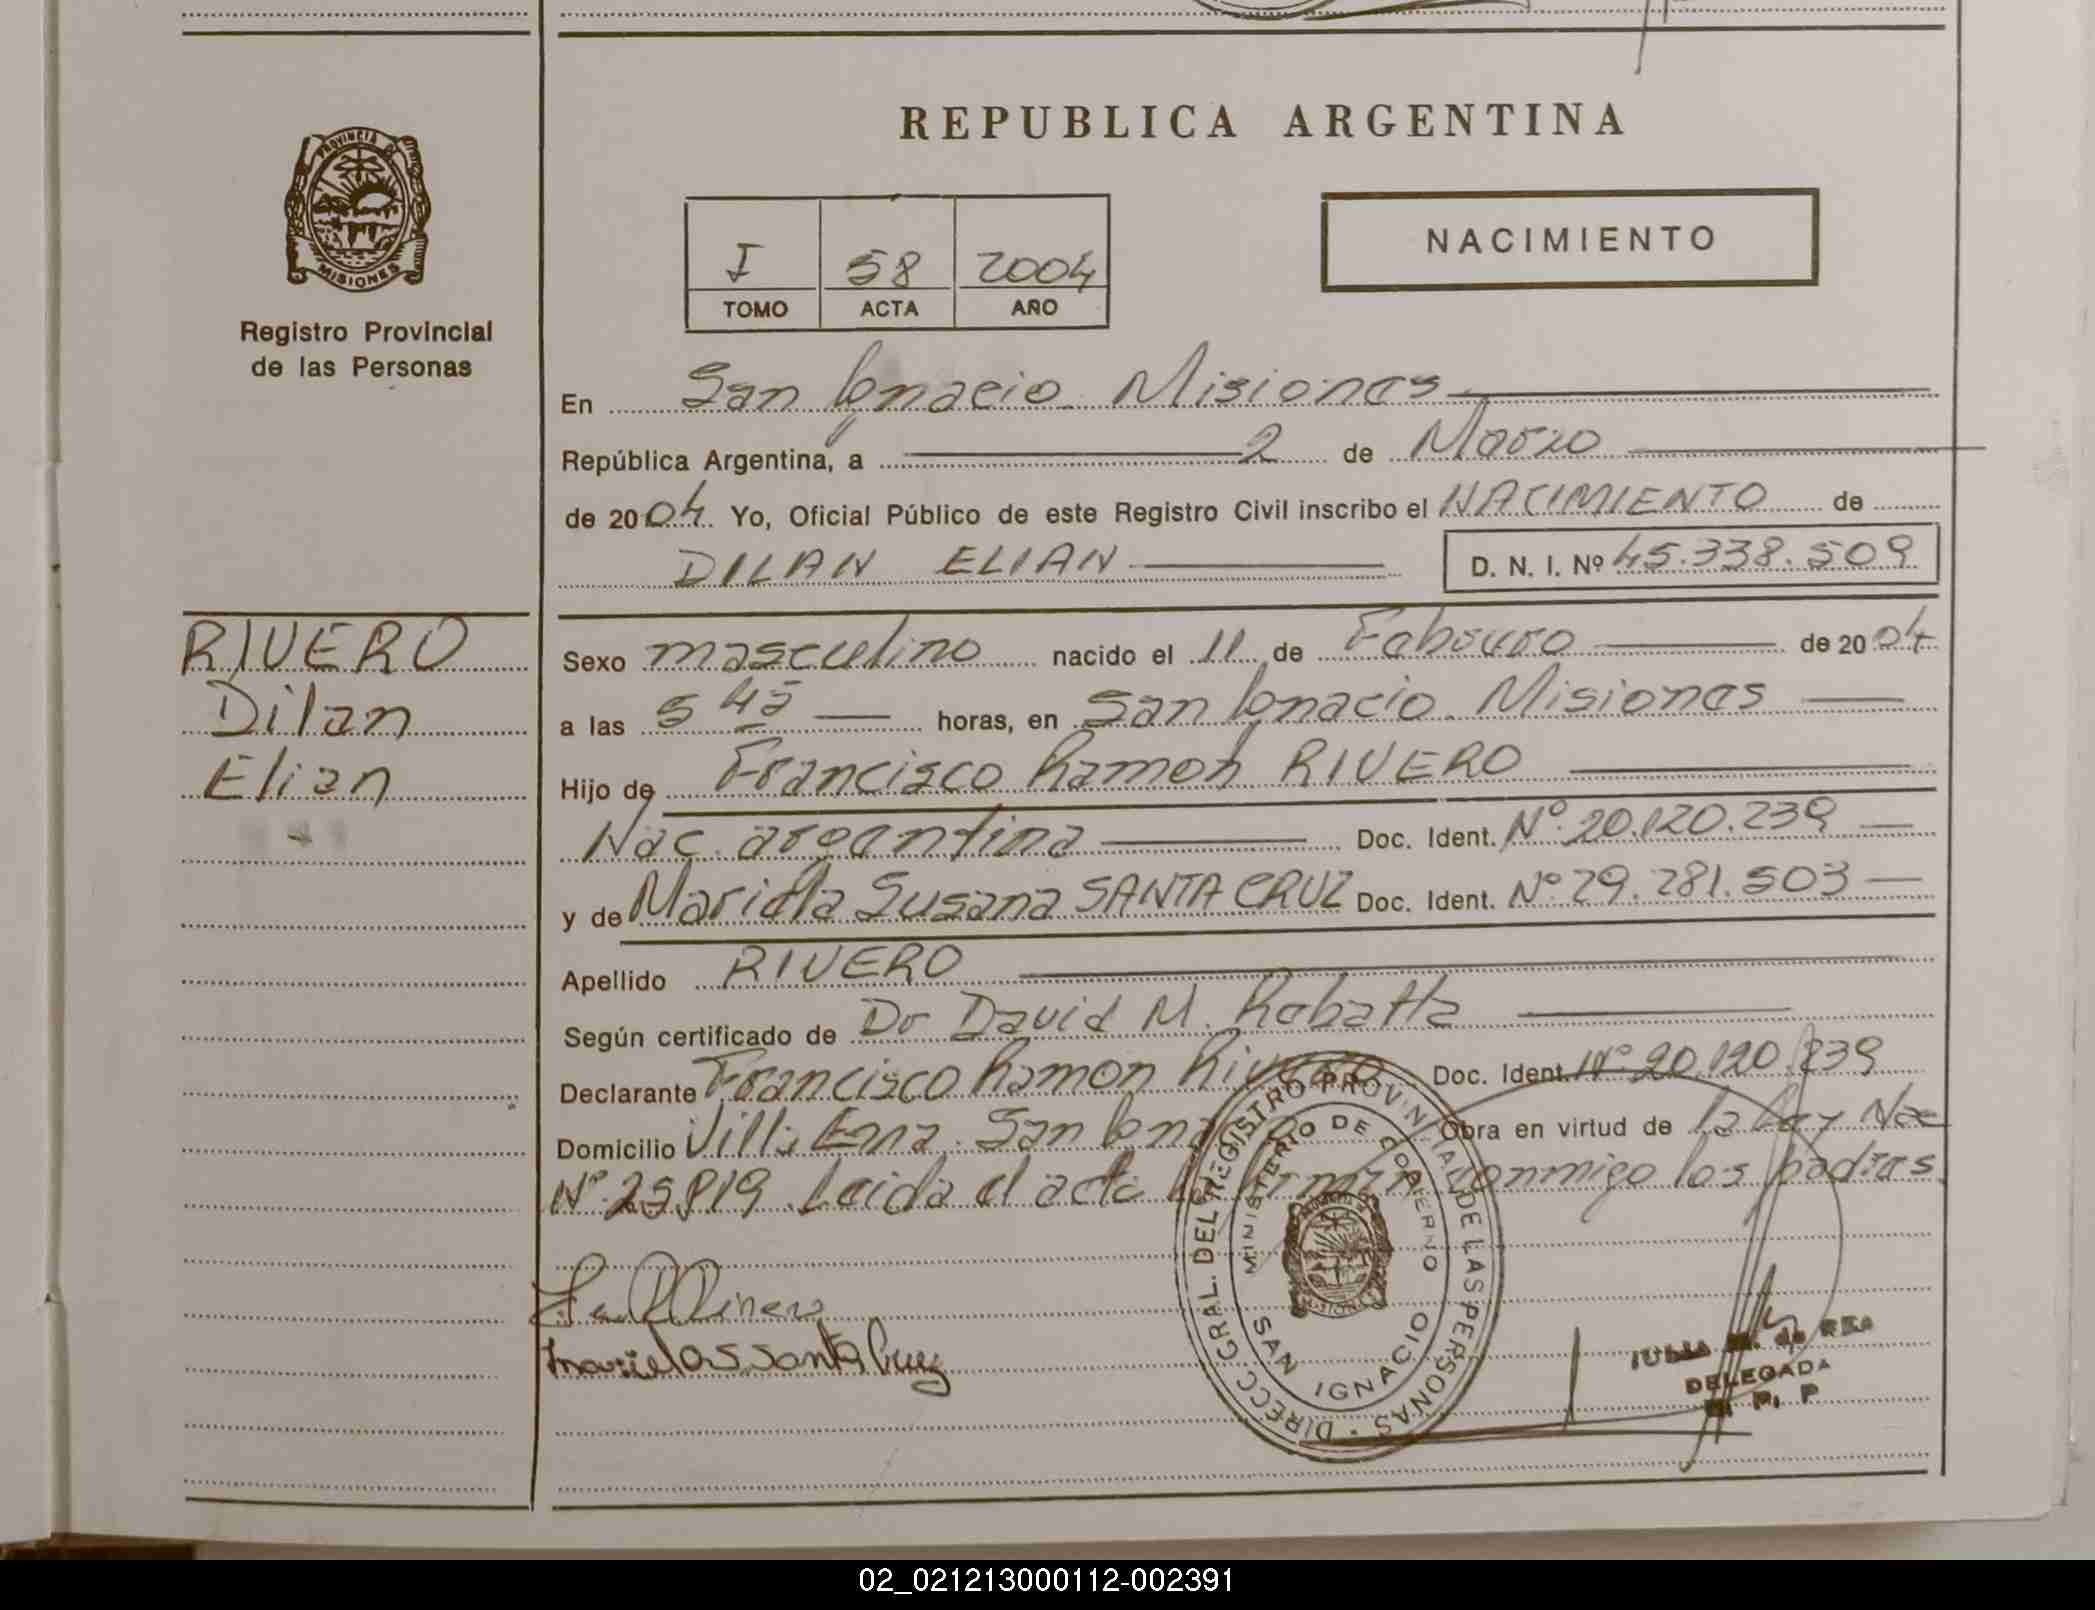 PROVINCIA DE
MISIONES
Registro Provincial
de las Personas
REPUBLICA ARGENTINA
I 58 2004
TOMO ACTA AÑO
NACIMIENTO
En San Ignacio Misiones
República Argentina, a 2 de Marzo
de 2004 Yo, Oficial Público de este Registro Civil inscribo el NACIMIENTO de
DILAN ELIAN D. N. I. Nº 45.338.509
RIVERO
Dilan
Elian
Sexo masculino nacido el 11 de Febrero de 2004
a las 5 45 horas, en San Ignacio Misiones
Hijo de Francisco Ramon RIVERO
Nac. argentina Doc. Ident. Nº 20.120.239
y de Mariela Susana SANTA CRUZ Doc. Ident. Nº 29.281.503
Apellido RIVERO
Según certificado de Dr David M.
Declarante Francisco Ramon Rivero Doc. Ident. Nº 20.120.239
Domicilio Villa San Ignacio Obra en virtud de la Ley Nac
Nº 25819 Leida el acta la firman conmigo los padres
DIRECC. GRAL. DEL REGISTRO PROVINCIAL DE LAS PERSONAS
MINISTERIO DE GOBIERNO
SAN IGNACIO
Mariela S Santa Cruz
de REA
DELEGADA
02_021213000112-002391